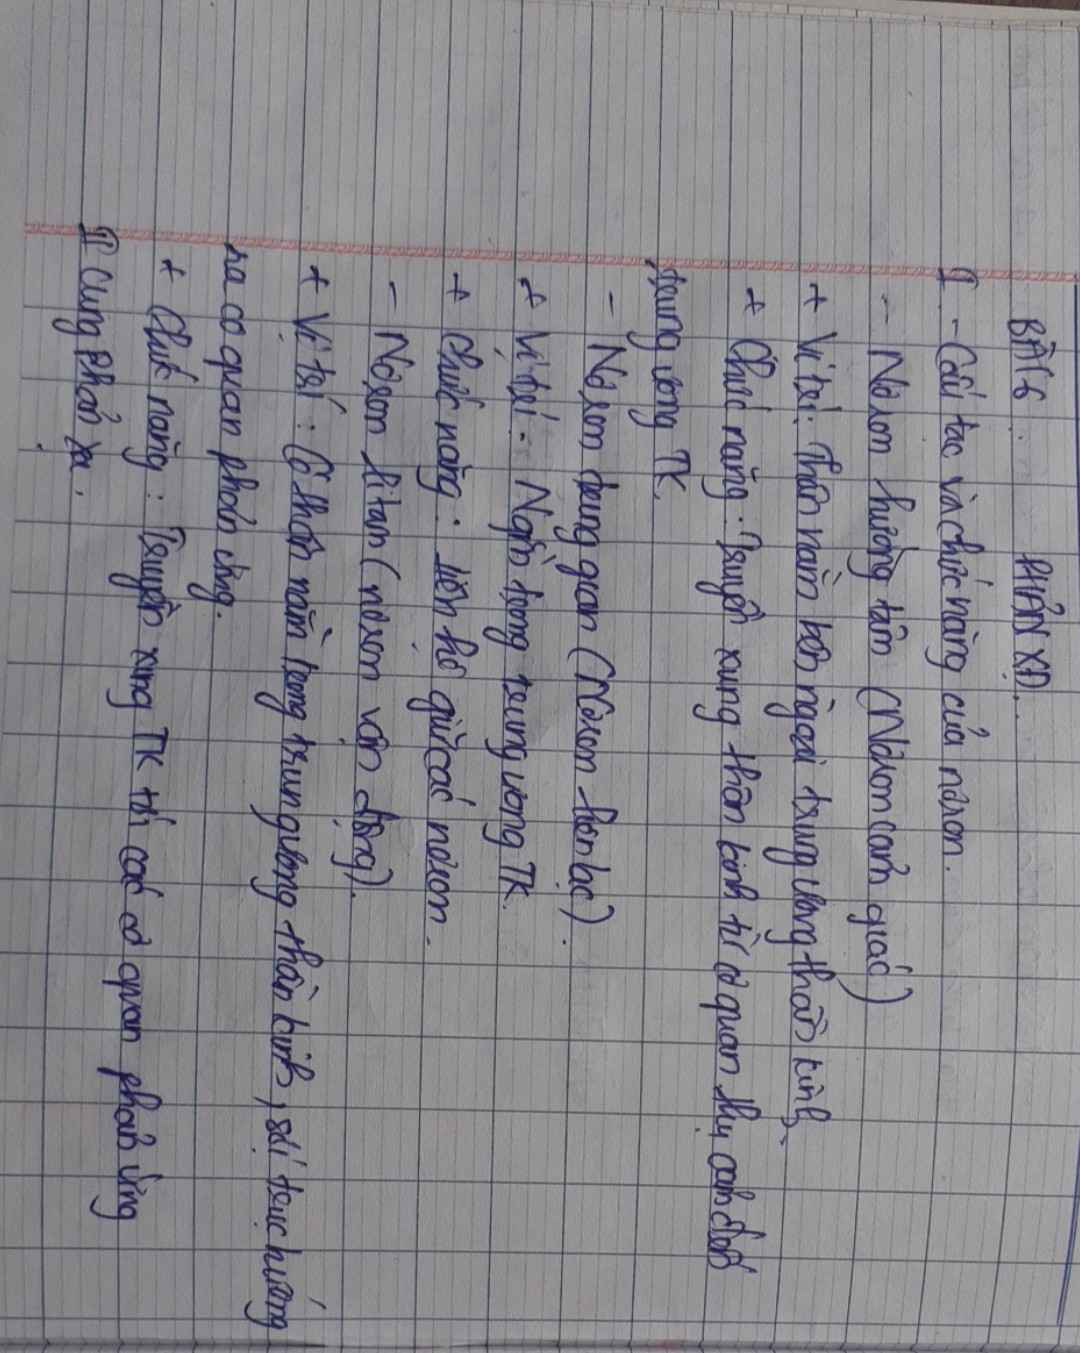 BÀI 6 PHẢN XẠ.
I - Cấu tạo và chức năng của nơron.
- Nơron hướng tâm (Nơron cảm giác)
+ Vị trí: Thân nằm bên ngoài trung ương thần kinh.
+ Chức năng: Truyền xung thần kinh từ cơ quan thụ cảm đến
trung ương TK.
- Nơron trung gian (Nơron liên lạc).
+ Vị trí: Nằm trong trung ương TK.
+ Chức năng: liên hệ giữa các nơron.
- Nơron li tâm (nơron vận động).
+ Vị trí: Có thân nằm trong trung ương thần kinh, sợi trục hướng
ra cơ quan phản ứng.
+ Chức năng: Truyền xung TK tới các cơ quan phản ứng
II Cung phản xạ.